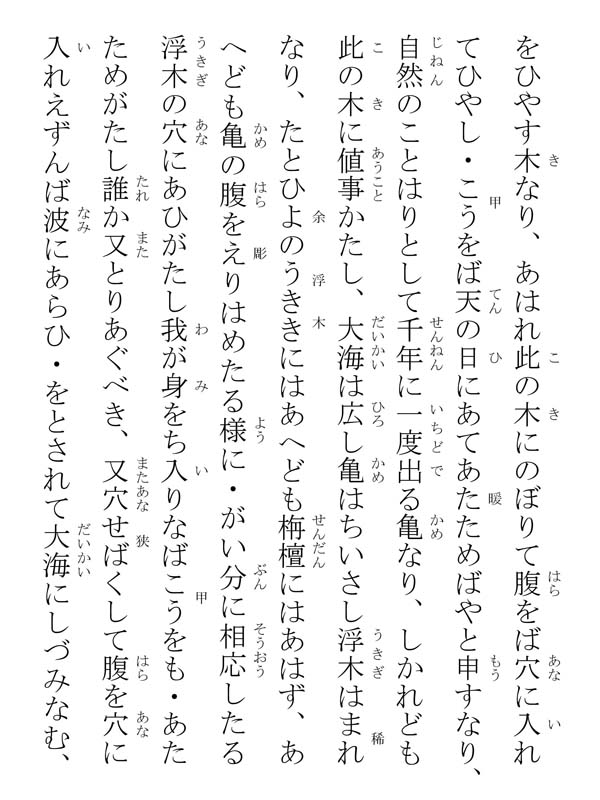 をひやす木なり、あはれ此の木にのぼりて腹をば穴に入れ
てひやし・こうをば天の日にあてあたためばやと申すなり、
自然のことはりとして千年に一度出る亀なり、しかれども
此の木に値事かたし、大海は広し亀はちいさし浮木はまれ
なり、たとひよのうききにはあへども栴檀にはあはず、あ
へども亀の腹をえりはめたる様に・がい分に相応したる
浮木の穴にあひがたし我が身をち入りなばこうをも・あた
ためがたし誰か又とりあぐべき、又穴せばくして腹を穴に
入れえずんば波にあらひ・をとされて大海にしづみなむ、